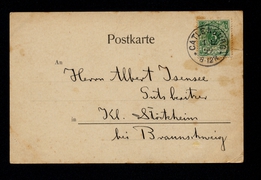 Postkarte
An
Herrn Albert Isensee
Gutsbesitzer
in Kl. Stöckheim
bei Braunschweig